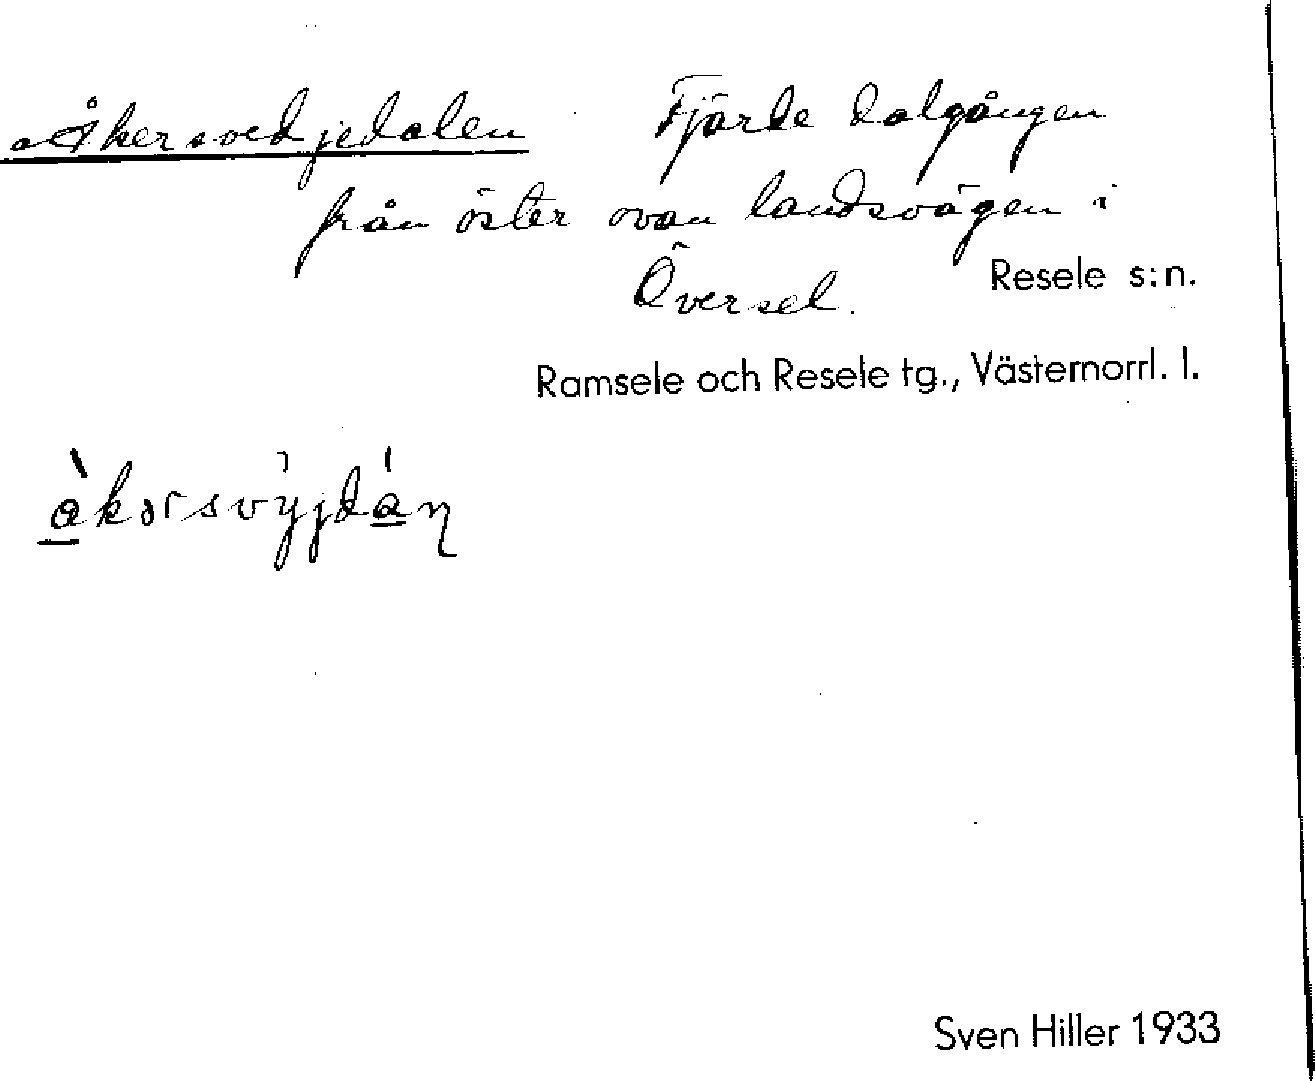 Åkersvedjedalen Fjärde dalgången
från öster ovan landsvägen i
Översel.
Resele s:n.
Ramsele och Resele tg., Västernorrl. l.
Sven Hiller 1933